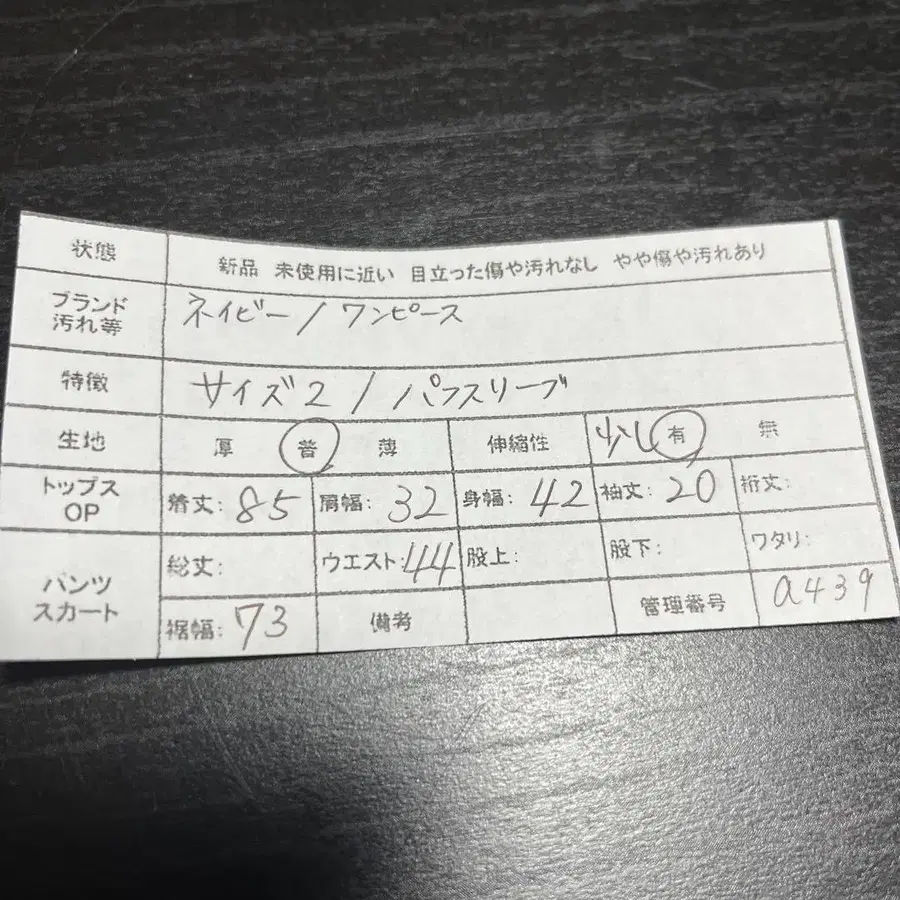 状態 新品 未使用に近い 目立った傷や汚れなし やや傷や汚れあり
ブランド
汚れ等 ネイビー / ワンピース
特徴 サイズ2 / パフスリーブ
生地 厚 普 薄 伸縮性 少し 有 無
トップス
OP 着丈: 85 肩幅: 32 身幅: 42 袖丈: 20 裄丈:
パンツ
スカート 総丈: ウエスト: 44 股上: 股下: ワタリ:
裾幅: 73 備考 管理番号 a439